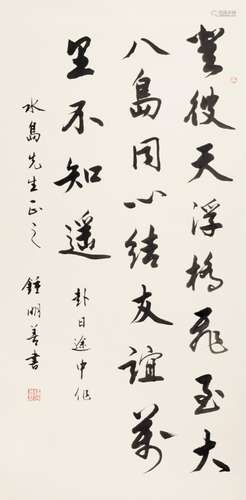 登彼天浮橋飛至大
八島同心結友誼萬
里不知遥
赴日途中作
水島先生正之
鍾明善書